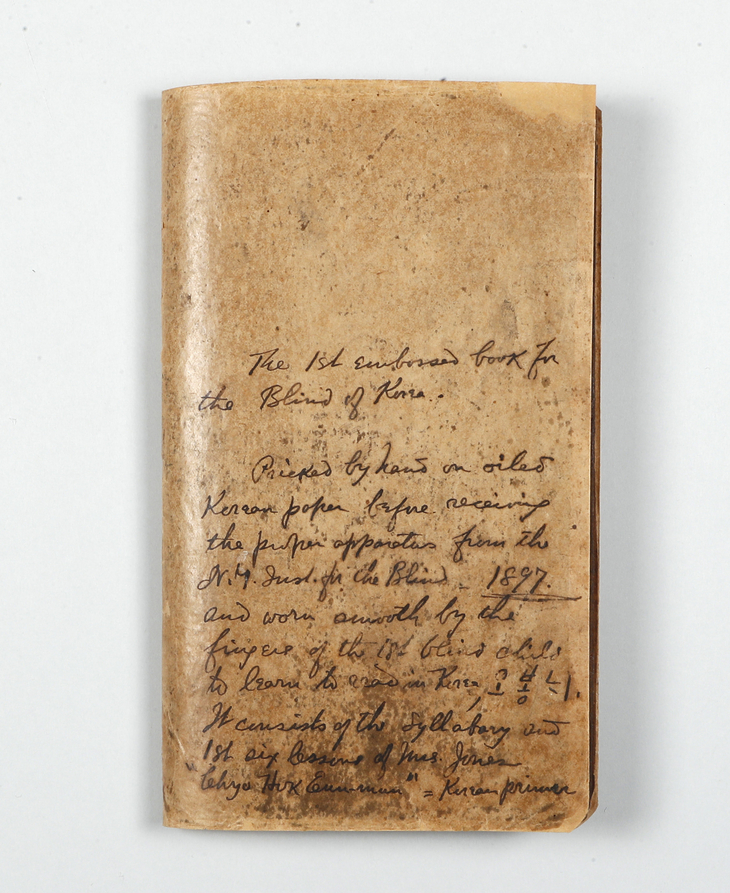 The 1st embossed book for
the Blind of Korea.
Pricked by hand on oiled
Korean paper before receiving
the proper apparatus from the
N.Y. Inst. for the Blind - 1897.
and worn smooth by the
fingers of the 1st blind child
to learn to read in Korea, 오봉뇌.
It consists of the Syllabary and
1st six lessons of Mrs. Jones
Cho Hok Eunmun" = Korean primer